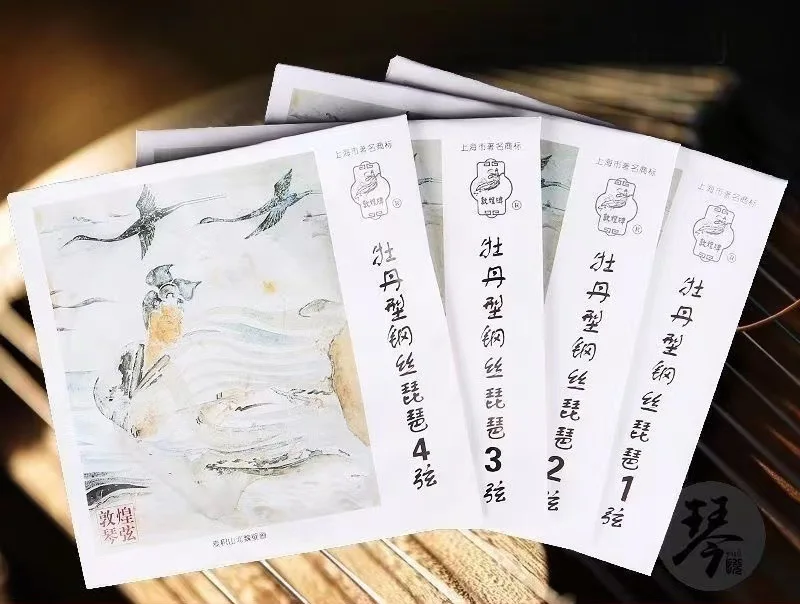 上海市著名商标
敦煌牌
®
牡丹型钢丝琵琶4弦
敦煌
琴弦
麦积山北魏壁画
上海市著名商标
敦煌牌
®
牡丹型钢丝琵琶3弦
上海市著名商标
敦煌牌
®
牡丹型钢丝琵琶2弦
上海市著名商标
敦煌牌
®
牡丹型钢丝琵琶1弦
琴